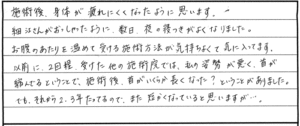 施術後、身体が疲れにくくなったように思います。
細江さんがおっしゃたように、数日、夜の寝つきがよくなりました。
お腹のあたりを温めて受ける施術方法が気持ちよくて気に入ってます。
以前に、2回程、受けた他の施術院では、私の姿勢が悪く、首が
縮んでるということで、施術後、首がいくらか長くなった？ということがありました。
でも、それから2、3年たってるので、また短かくなっていると思いますが…。